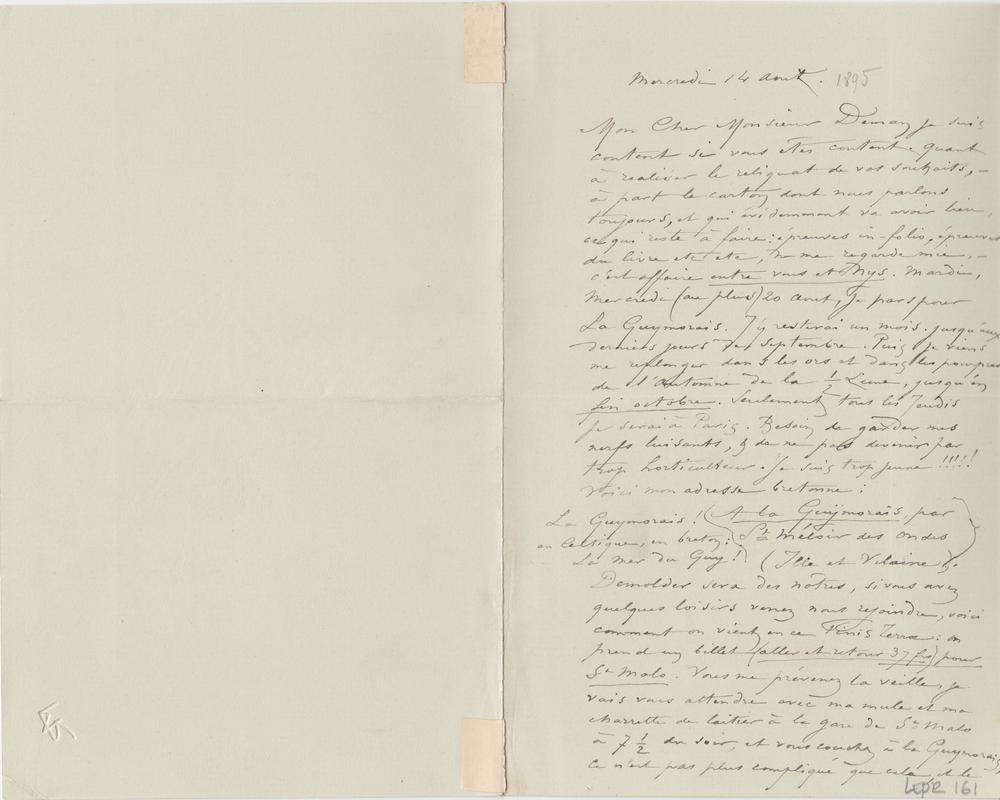 Mercredi 14 Aout. 1895
Mon Cher Monsieur Deman, je suis
content si vous êtes content. Quant
à réaliser le reliquat de vos souhaits, –
à part le carton dont nous parlons
toujours, et qui évidemment va avoir lieu,
ce qui reste à faire: épreuves in-folio, épreuves
du livre etc etc, ne me regarde mie, –
c'est affaire entre vous et Nys. Mardi,
Mercredi (au plus) 20 aout, je pars pour
La Guymorais. J'y resterai un mois. jusqu'aux
derniers jours de septembre. Puis je viens
me replonger dans les ors et dans les pourpres
de l'Automne de la ½ Lune, jusqu'en
fin octobre. Seulement tous les Jeudis
je serai à Paris. Besoin de garder mes
nerfs luisants, & de ne pas devenir par
trop horticulteur. Je suis trop jeune !!!!!
Voici mon adresse bretonne:
La Guymorais! (A la Guymorais, par
en Celtique, en breton: St Méloir des Ondes
La mer du Guy! (Ille et Vilaine).
Demolder sera des nôtres, si vous avez
quelques loisirs venez nous rejoindre, voici
comment on vient en ce Finis Terra: on
prend un billet (aller et retour 37 frs) pour
St Malo. Vous me prévenez la veille, je
vais vous attendre avec ma mule et ma
charrette de laitier à la gare de St Malo
à 7 ½ du soir, et vous couchez à la Guymorais,
ce n'est pas plus compliqué que cela, et le
LEpR 161